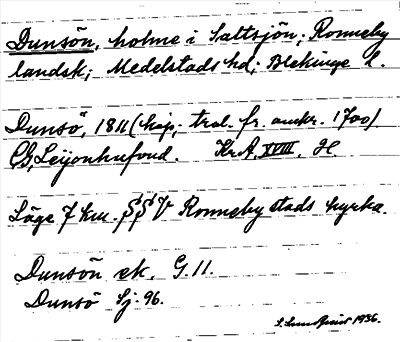 Dunsön, holme i Saltsjön; Ronneby
landsk; Medelstads hd; Blekinge l.
Dunsö, 1811 (kop; trol. fr. omkr. 1700)
CG, Leijonhufvud. KrA, XVIII. H
Läge 7 km. SSV Ronneby stads kyrka.
Dunsön ek. G. 11.
Dunsö Sj. 96.
S. Lundqvist 1936.